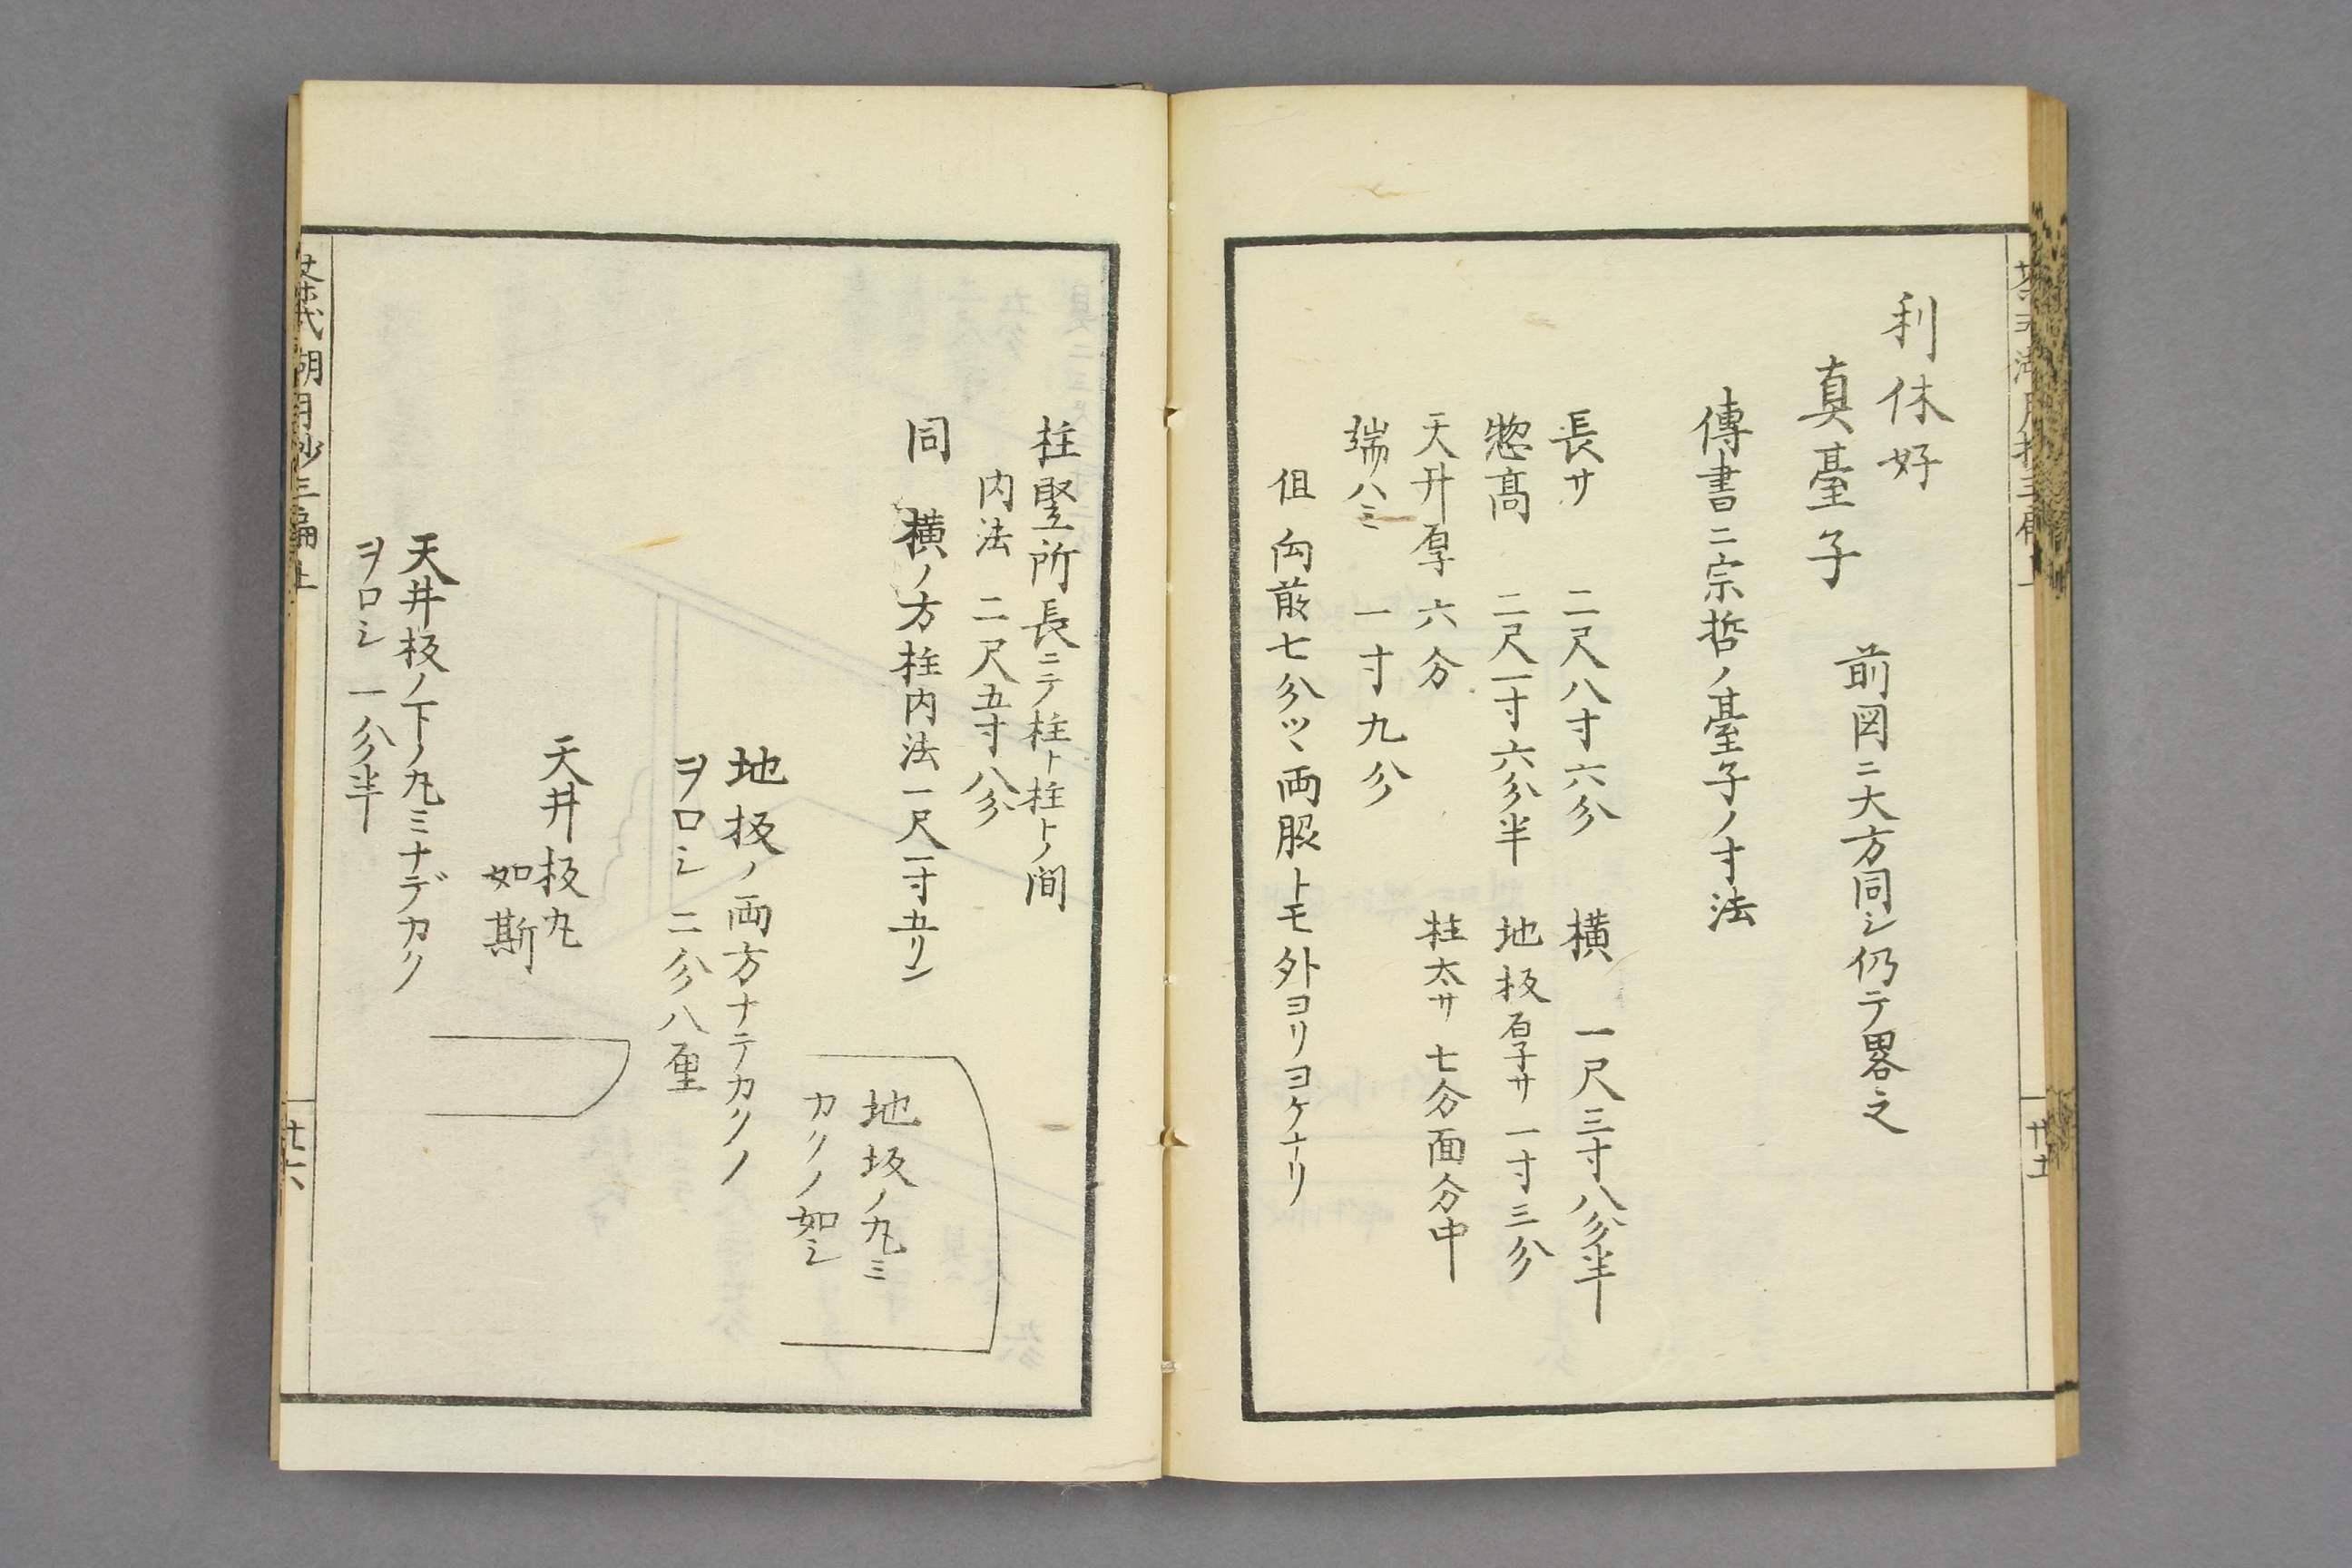 利休好
真臺子
前図ニ大方同シ仍テ畧之
傳書ニ宗哲ノ臺子ノ寸法
長サ 二尺八寸六分 横 一尺三寸八分半
惣髙 二尺一寸六分半 地板厚サ 一寸三分
天井厚 六分 柱太サ 七分面分中
端ハミ 一寸九分
但 向前七分ツヽ両服トモ外ヨリヨケナリ
廿五
柱竪所長ニテ柱ト柱トノ間
内法 二尺五寸八分
同 横ノ方柱内法一尺一寸五リン
地板ノ丸ミ
カクノ如シ
地板ノ両方ナテカクノ
ヲロシ 二分八厘
天井板丸
如斯
天井板ノ下ノ丸ミナデカクノ
ヲロシ 一分半
茶式湖月抄三編上
廿六